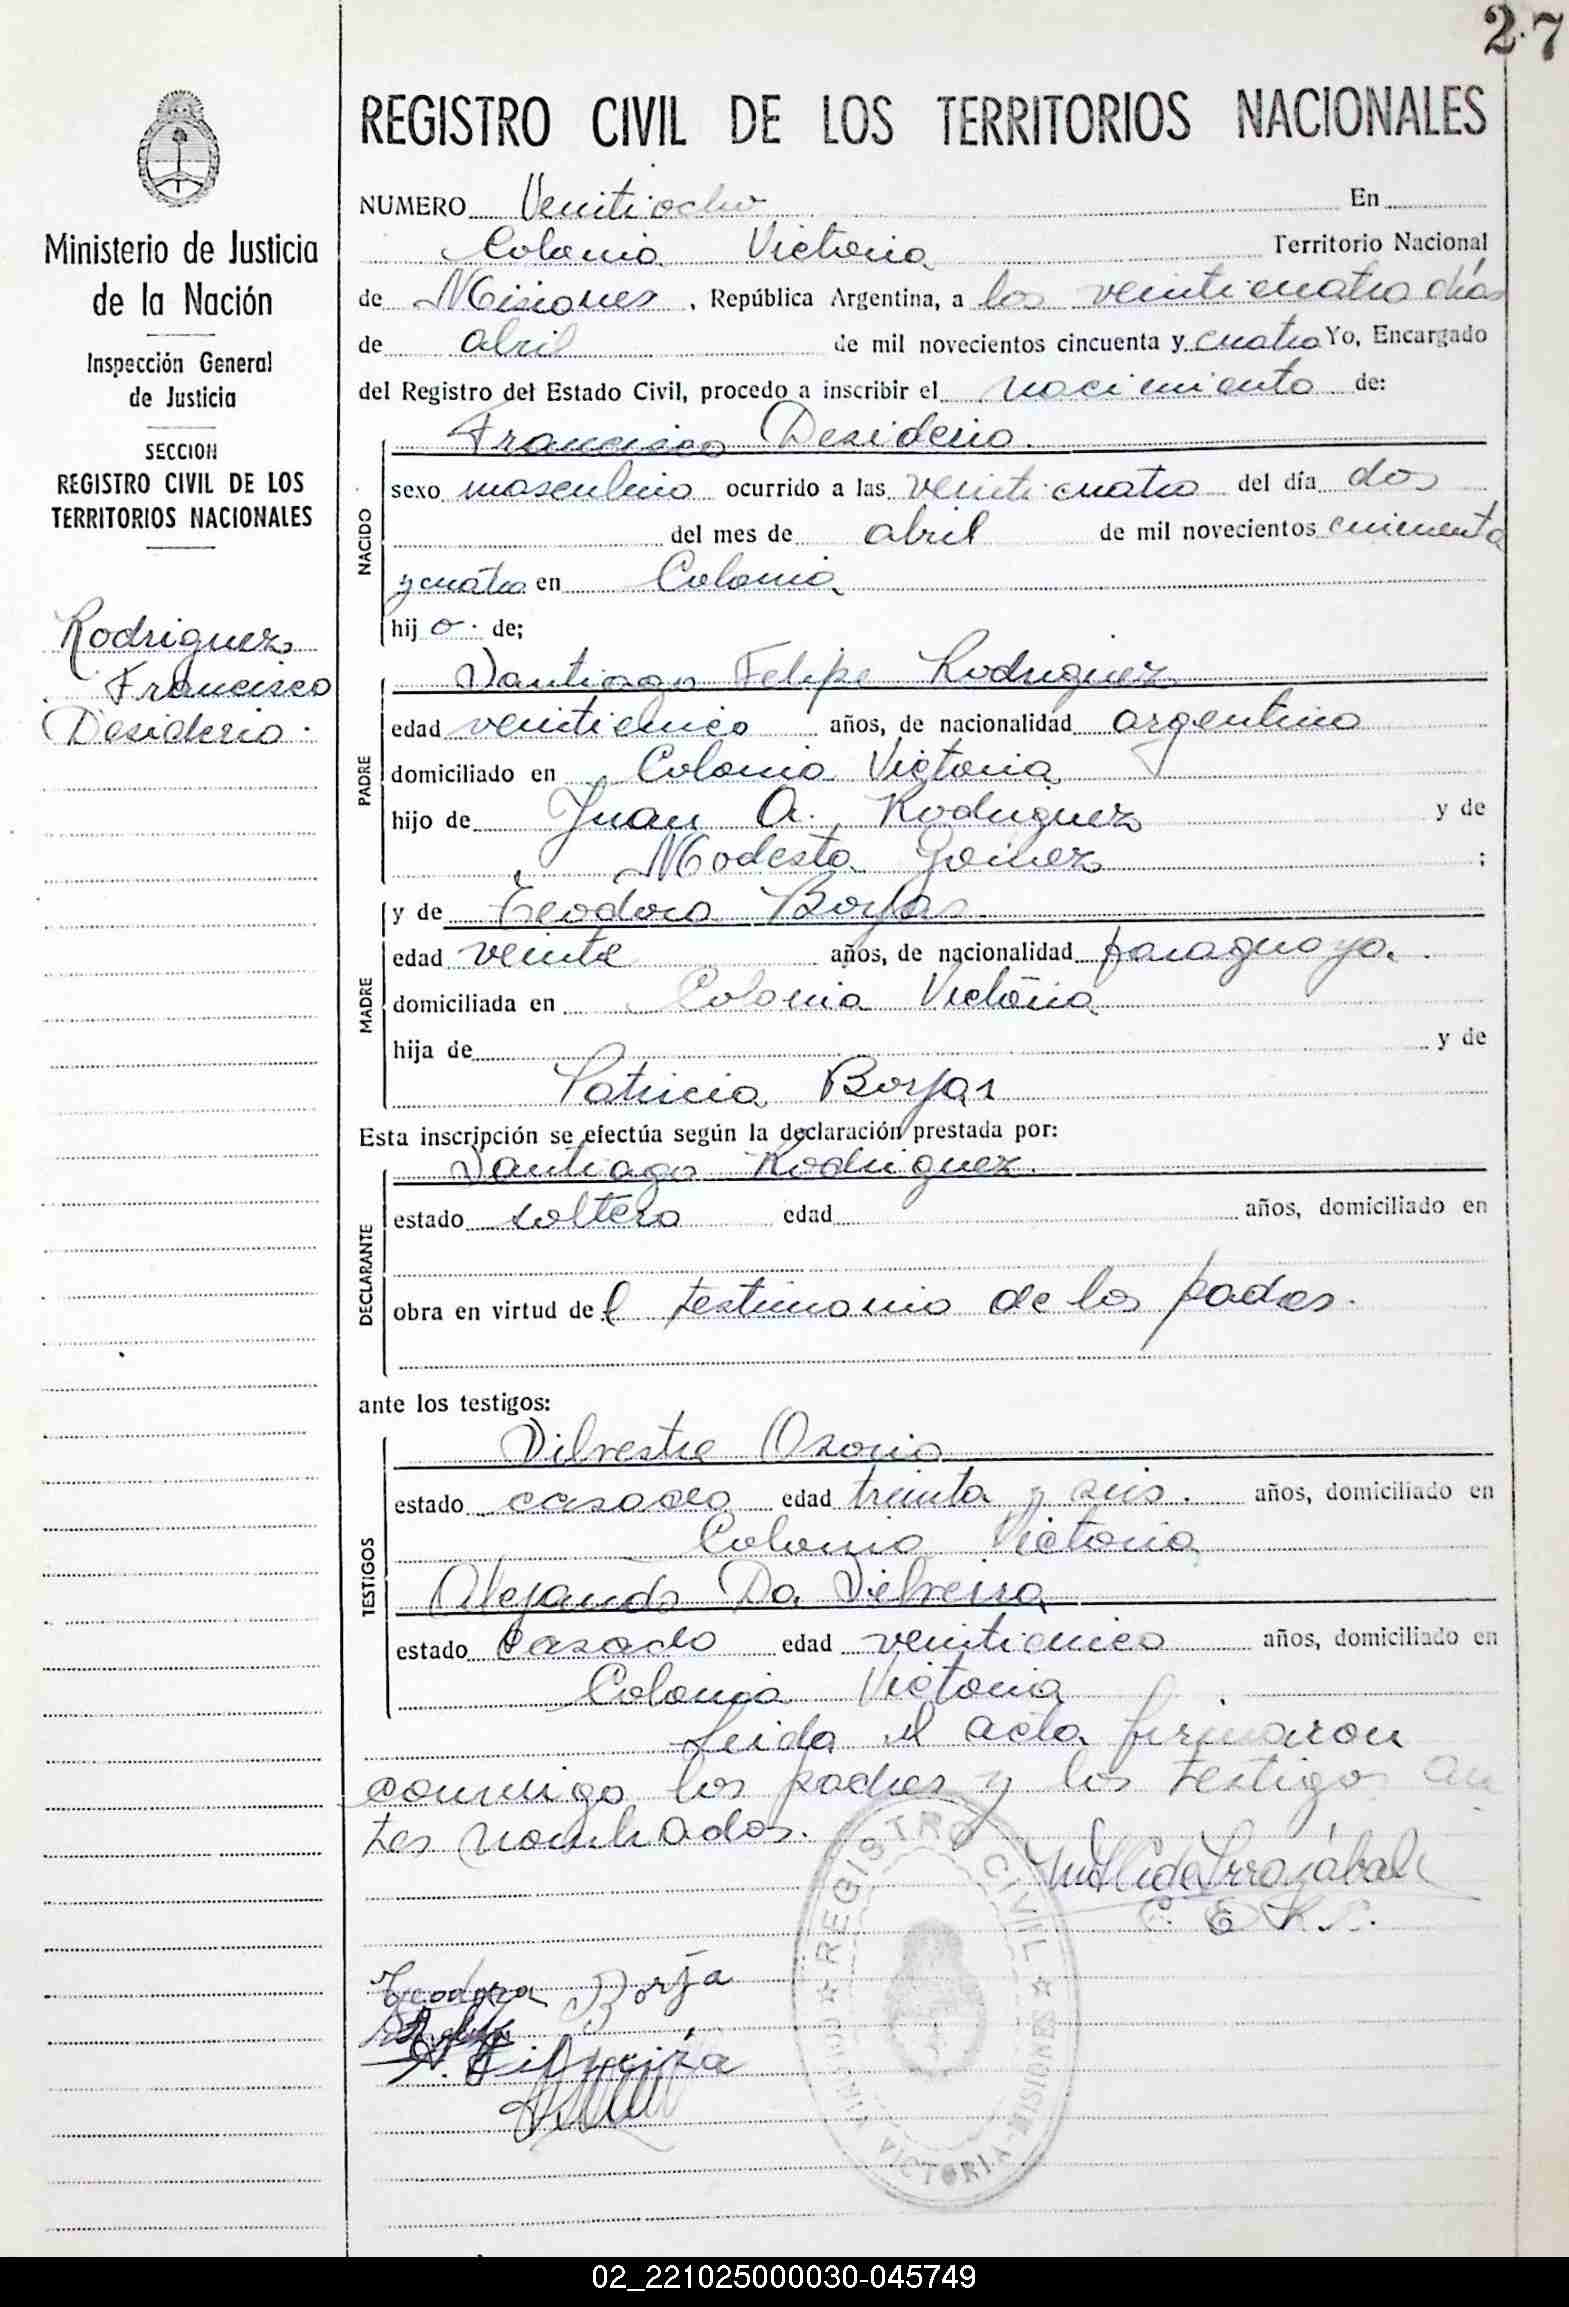 2·7
REGISTRO CIVIL DE LOS TERRITORIOS NACIONALES
Ministerio de Justicia
de la Nación
Inspección General
de Justicia
SECCION
REGISTRO CIVIL DE LOS
TERRITORIOS NACIONALES
Rodriguez
Francisco
Desiderio.
NUMERO Veintiocho En
Colonia Victoria Territorio Nacional
de Misiones, República Argentina, a los veinticuatro días
de abril de mil novecientos cincuenta y cuatro Yo, Encargado
del Registro del Estado Civil, procedo a inscribir el nacimiento de:
Francisco Desiderio.
NACIDO
sexo masculino ocurrido a las veinticuatro del día dos
del mes de abril de mil novecientos cincuenta
y cuatro en Colonia
hij o. de;
PADRE
Santiago Felipe Rodriguez
edad veinticinco años, de nacionalidad argentino
domiciliado en Colonia Victoria
hijo de Juan A. Rodriguez y de
Modesta Gomez ;
MADRE
y de Teodora Borjas
edad veinte años, de nacionalidad paraguaya.
domiciliada en Colonia Victoria
hija de y de
Patricia Borjas
Esta inscripción se efectúa según la declaración prestada por:
DECLARANTE
Santiago Rodriguez.
estado soltero edad años, domiciliado en
obra en virtud del testimonio de los padres.
ante los testigos:
TESTIGOS
Silvestre Osorio
estado casado edad treinta y seis. años, domiciliado en
Colonia Victoria
Alejandro Da Silveira
estado casado edad veinticinco años, domiciliado en
Colonia Victoria
Leida el acta firmaron
conmigo los padres y los testigos an
tes nombrados.
Teodora Borja
A. Silveira
REGISTRO CIVIL
COLONIA VICTORIA-MISIONES
02_221025000030-045749